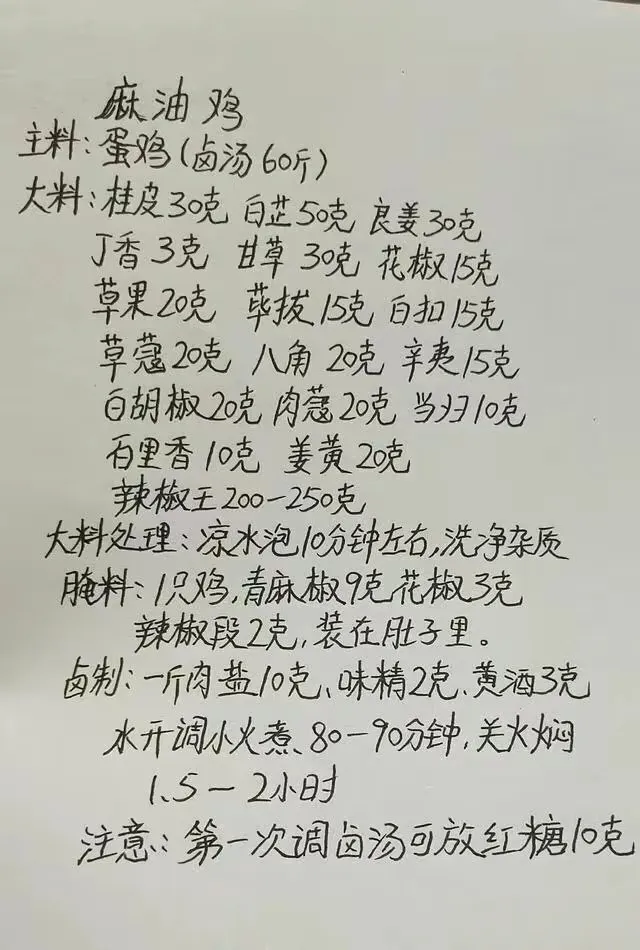 麻油鸡
主料:蛋鸡(卤汤60斤)
大料:桂皮30克 白芷50克 良姜30克
丁香3克 甘草30克 花椒15克
草果20克 荜拔15克 白扣15克
草蔻20克 八角20克 辛夷15克
白胡椒20克 肉蔻20克 当归10克
百里香10克 姜黄20克
辣椒王200-250克
大料处理:凉水泡10分钟左右,洗净杂质
腌料:1只鸡,青麻椒9克花椒3克
辣椒段2克,装在肚子里。
卤制:一斤肉盐10克、味精2克、黄酒3克
水开调小火煮、80-90分钟,关火焖
1.5-2小时
注意:第一次调卤汤可放红糖10克